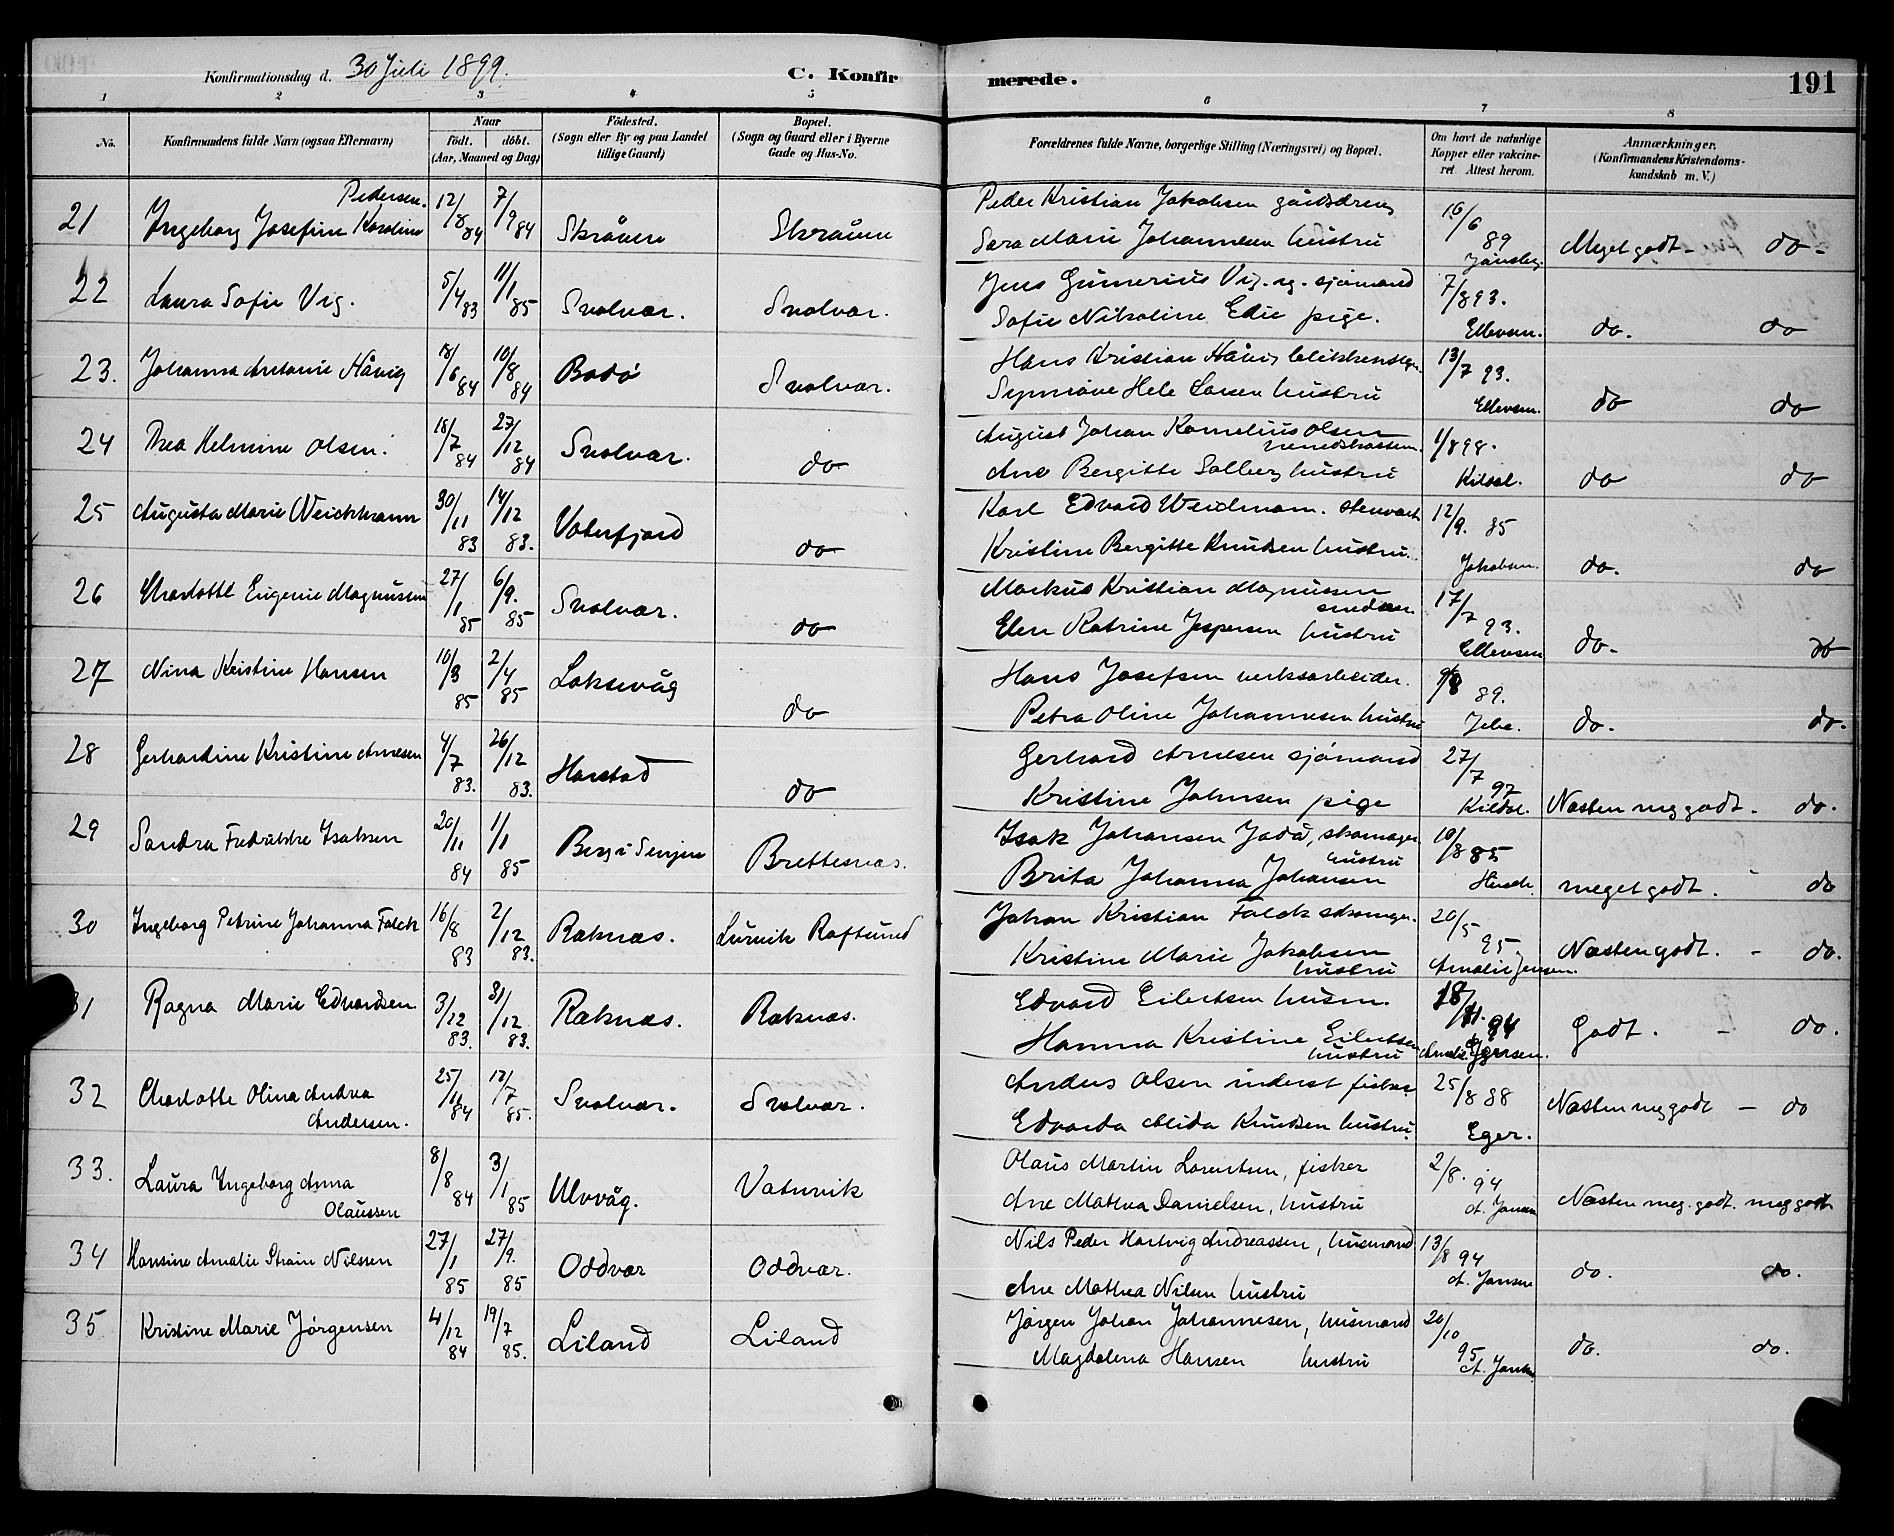 Konfirmationsdag d. 30 Juli 1899. C. Konfirmerede. 191
1 2 3 4 5 6 7 8
No.
Konfirmandens fulde Navn (ogsaa Efternavn)
Naar
født. døbt.
(Aar, Maaned og Dag)
Fødested.
(Sogn eller By og paa Landet
tillige Gaard)
Bopæl.
(Sogn og Gaard eller i Byerne
Gade og Hus-No.
Forældrenes fulde Navne, borgerlige Stilling (Næringsvei) og Bopæl.
Om havt de naturlige
Kopper eller vakcine-
ret. Attest herom.
Anmærkninger.
(Konfirmandens Kristendoms-
kundskab m. V.)
21 Ingeborg Josefine Karoline Pedersen. 12/8 84 7/9 84 Skråven Skråven
Peder Kristian Jakobsen gårdsdreng
Sara Marie Johannesen hustru
16/6 89 Meget godt - do -
22 Laura Sofie Vig. 5/4 83 11/1 85 Svolvær. Svolvær.
Jens Gunerius Vig. ug. sjømand
Sofie Nikoline Edie pige.
7/8 93. Ellevsen. do. do
23. Johanna Antonie Håvig 18/6 84 10/8 84 Bodø Svolvær.
Hans Kristian Håvig blikkensl.
Synnøve Hele Larsen hustru
13/7 93. Ellevsen. do do
24 Thea Helmine Olsen. 18/7 84 27/12 84 Svolvær. do
August Johan Kornelius Olsen
Ane Bergitte Solberg hustru
1/8 98. Kildal. do do
25 Augusta Marie Weichmann 30/11 83 14/12 83. Vaterfjord do
Karl Edvard Weidmann. stenarb
Kristine Bergitte Knudsen hustru.
12/9. 85 Jakobsen. do. do
26 Charlotte Eugenie Magnussen 27/1 85 6/9. 85 Svolvær. do
Markus Kristian Magnussen
Elen Katrine Jespersen hustru
17/7 93. Ellevsen do. do
27 Nina Kristine Hansen 10/3 85 2/4 85 Laksevåg do
Hans Josefsen verksarbeider.
Petra Oline Johannesen hustru
89. do. do.
28 Gerhardine Kristine Arnesen 4/7 83. 26/12 83. Harstad do
Gerhard Arnesen sjømand
Kristine Johnsen pige
27/7 97 Kildal. Næsten meg godt. do.
29 Sandra Fredrikke Isaksen 20/11 84 1/1 85 Berg i Senjen Brettesnæs.
Isak Johansen Jadå, skomager
Brita Johanna Johansen hustru
10/8 85 meget godt. do
30 Ingeborg Petrine Johanna Falck 16/8 83 2/12 83. Raknæs. Lurvik Raftsund
Johan Kristian Falck skomager.
Kristine Marie Jakobsen
hustru
20/5 95 Amalie Jensen. Næsten godt. - do.
31 Ragna Marie Edvardsen 3/12 83. 31/12 83. Raknæs. Raknæs.
Edvard Eilertsen husm.
Hanna Kristine Eilertsen
hustru
18/11. 94 Godt. - do.
32 Charlotte Olina Andrea
Andersen. 25/11 84 12/7 85. Svolvær. Svolvær.
Anders Olsen inderst fisker
Edvarda Alida Knudsen hustru.
25/8 88 Eger. Næsten meg godt - do
33. Laura Ingeborg Anna
Olaussen 8/8 84 3/1 85 Ulvvåg. Vatnvik
Olaus Martin Lorentsen, fisker
Ane Mathea Danielsen, hustru
2/8. 94 A. Jansen Næsten meg. godt. meg godt
34 Hansine Amalie Strøm Nilssen 27/1 85 27/9. 85 Oddvær Oddvær.
Nils Peder Hartvig Andreassen, husmand
Ane Mathea Nilsen hustru
13/8 94 A. Jansen do. do.
35 Kristine Marie Jørgensen 4/12 84 19/7 85. Liland Liland
Jørgen Johan Johannesen, husmand
Magdalena Hansen hustru
20/10 95 A. Jansen do. do.